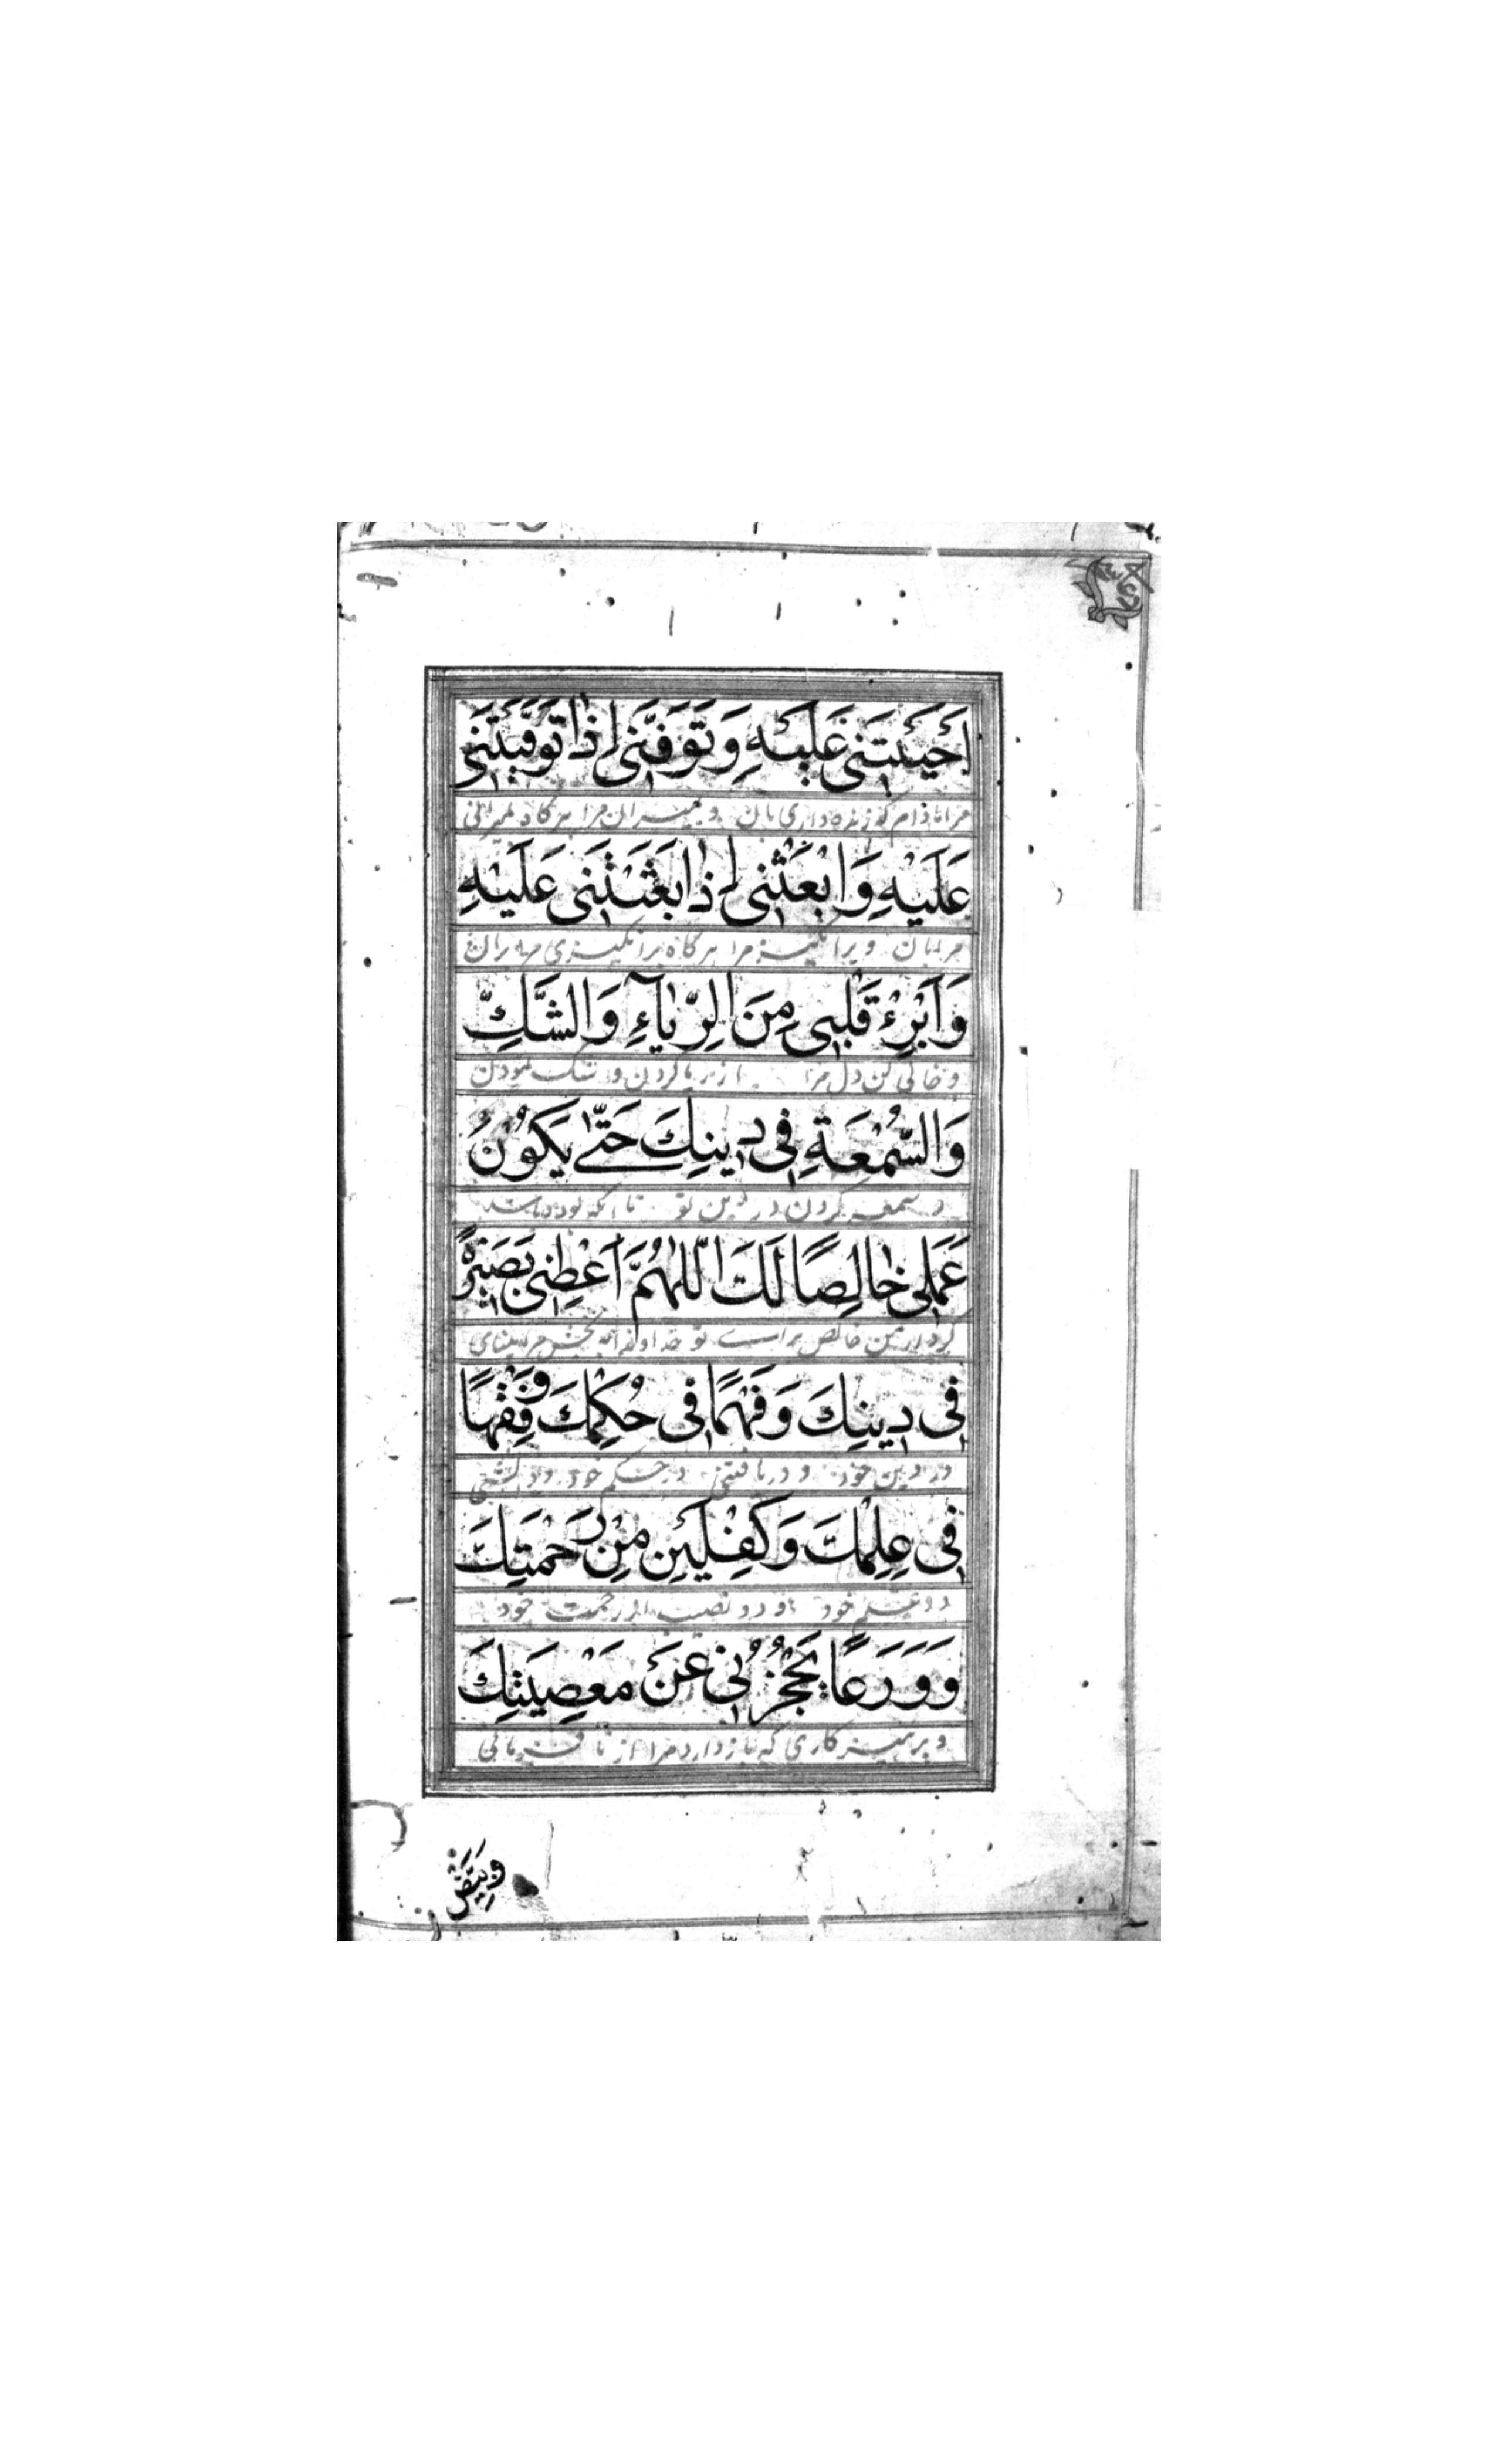 اَحْيَيْتَنى عَلَيْهِ وَتَوَفَّنى اِذا تَوَفَّيْتَنى
مرا مادام که زنده داری بان و بمیران مرا هر گاه بمیرانی
عَلَيْهِ وَابْعَثْنى اِذا بَعَثْتَنى عَلَيْهِ
مرا بان و برانگیز مرا هر گاه برانگیزی مرا بران
وَاَبْرِءْ قَلْبى مِنَ الرِّياۤءِ وَالشَّكِّ
و خالی کن دل مرا از ریا کردن و شک نمودن
وَالسُّمْعَةِ فى دينِكَ حَتّٰى يَكُوْنَ
و سمعه کردن در دین تو تا آنکه بوده باشد
عَمَلى خالِصًا لَكَ اَللّٰهُمَّ اَعْطِنى بَصيرَةً
کردار من خالص برای تو خداوندا بخش مرا بینای
فى دينِكَ وَفَهْمًا فى حُكْمِكَ وَفِقْهًا
در دین خود و دریافتنی در حکم خود و دانشی
فى عِلْمِكَ وَكِفْلَيْنِ مِنْ رَحْمَتِكَ
در علم خود و دو نصیب از رحمت خود
وَوَرَعًا يَحْجُزُنى عَنْ مَعْصِيَتِكَ
و پرهیزکاری که باز دارد مرا از نافرمانی
وَبَيِّضْ